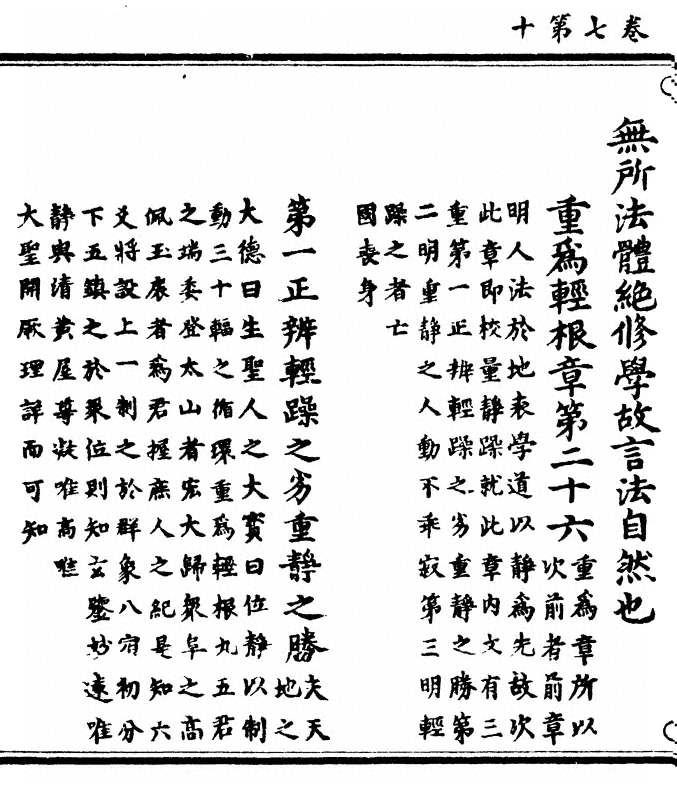 卷七第十
無所法體絕修學故言法自然也
重爲輕根章第二十六
重爲章所以
次前者前章
明人法於地表學道以靜爲先故次
此章即校量靜躁就此章內文有三
重第一正辨輕躁之劣重靜之勝第
二明重靜之人動不乖寂第三明輕
躁之者亡
國喪身
第一正辨輕躁之劣重靜之勝
夫天
地之
大德曰生聖人之大寶曰位靜以制
動三十輻之循環重爲輕根九五君
之瑞委登太山者宏大歸衆阜之高
佩玉扆者爲君握庶人之紀是知六
爻將設上一制之於群象八宿初分
下五鎮之於衆位則知玄鑒妙遠唯
靜與清黃屋尊凝唯高唯
大聖開厥理詳而可知